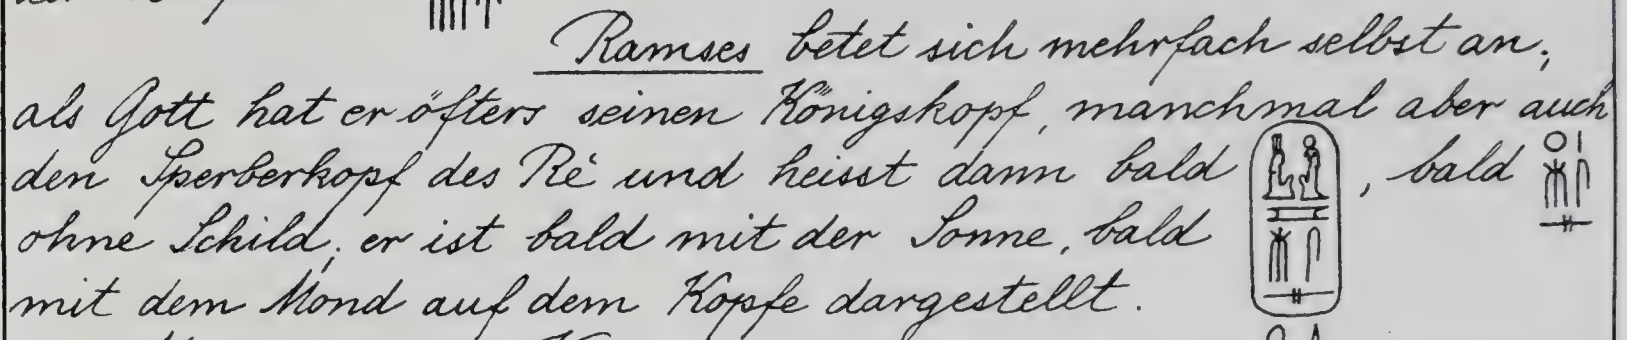 Ramses betet sich mehrfach selbst an;
als Gott hat er öfters seinen Königskopf, manchmal aber auch
den Sperberkopf des Rè und heisst dann bald , bald
ohne Schild; er ist bald mit der Sonne, bald
mit dem Mond auf dem Kopfe dargestellt.